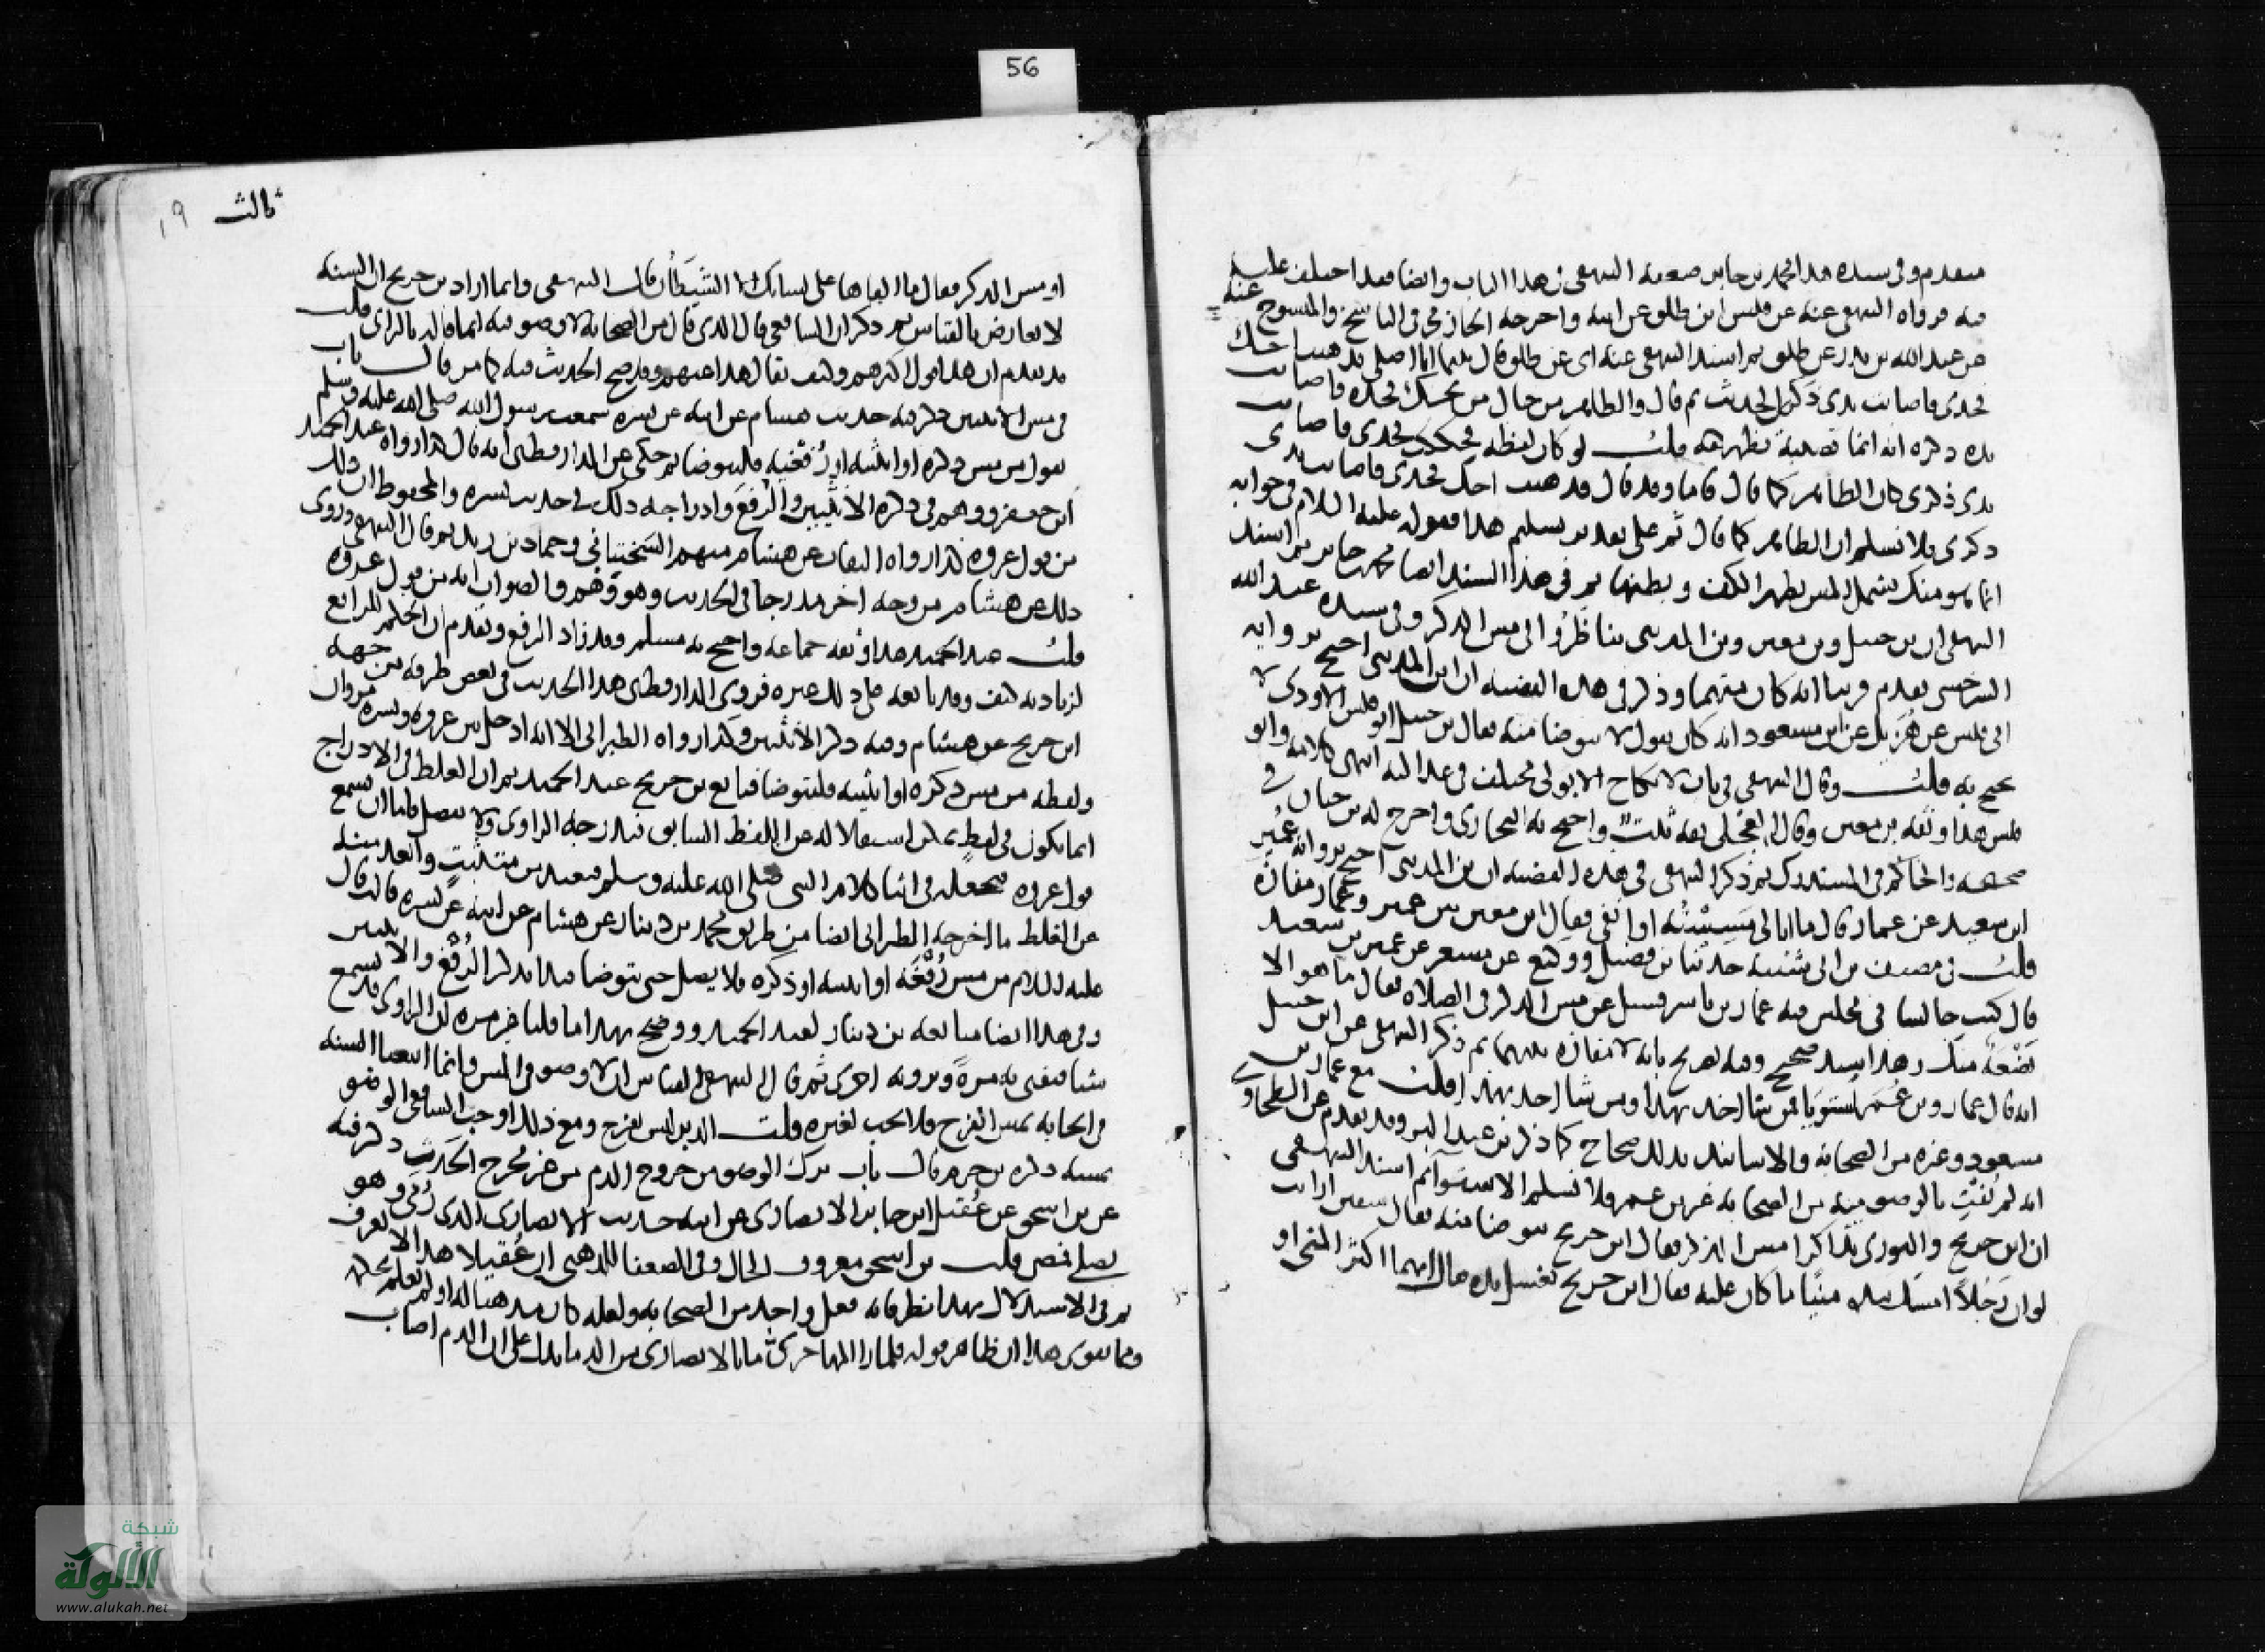 56
متقدم وفي سنده هذا محمد بن جابر ضعفه البيهقي في هذا الباب وايضا فقد اختلف عليه
فيه فرواه البيهقي عنه عن قيس ابن طلق عن ابيه واخرجه الحازمي في الناسخ والمنسوخ عنه
عن عبد الله بن بدر عن طلق ثم اسند البيهقي عنه اي عن طلق قال بينما انا اصلي فذهبت احك
فخذي فاصابت يدي ذكري الحديث ثم قال والظاهر من حال من يحك فخذه فاصابت
يده ذكره انه انما تصيبه بظهر كفه قلت لو كان لفظه فحككت فخذي فاصابت
يدي ذكري كان الظاهر كما قال فاما وقد قال فذهبت احك فخذي فاصابت يدي
ذكري فلا نسلم ان الظاهر كما قال ثم على تقدير تسليم هذا فقوله عليه السلام في جوابه
انما هو منك يشمل المس بظهر الكف وبطنها ثم في هذا السند ايضا محمد بن جابر ثم اسند
البيهقي ان بن حنبل وبن معين وبن المديني تناظروا في مس الذكر وفي سنده عبد الله
السرخسي تقدم قريبا انه كان متهما وذكر في هذه القضية ان ابن المديني احتج برواية
ابي قيس عن هزيل عن ابن مسعود انه كان يقول لا يتوضا منه فقال بن حنبل ابو قيس الاودي لا
يحتج به قلت وقال البيهقي في باب لا نكاح الا بولي مختلف في عدالته انتهى كلامه وابو
قيس هذا وثقه بن معين وقال العجلي ثقة ثبت واحتج به البخاري واخرج له بن حبان في
صحيحه والحاكم في المستدرك ثم ذكر البيهقي في هذه القضية ان بن المديني احتج برواية عمير
ابن سعيد عن عمار قال ما ابالي مسسته او انفي فقال ابن معين بين عمير وعمار مفازة
قلت في مصنف بن ابي شيبة حدثنا بن فضيل ووكيع عن مسعر عن عمير بن سعيد
قال كنت جالسا في مجلس فيه عمار بن ياسر فسئل عن مس الذكر في الصلاة فقال ما هو الا
بضعة منك وهذا سند صحيح وفيه تصريح بانه لا مفازة بينهما ثم ذكر البيهقي عن ابن حنبل
انه قال عمار وبن عمر استويا فمن شا اخذ بهذا ومن شا اخذ بهذا قلت مع عمار بن
مسعود وغيره من الصحابة والاسانيد بذلك صحاح كما ذكر بن عبد البر وقد تقدم عن الطحاوي
انه لم يفت بالوضو منه من الصحابة غير بن عمر فلا نسلم الاستوا ثم اسند البيهقي
ان ابن جريج والثوري تذاكرا مس الذكر فقال ابن جريج يتوضا منه فقال سفين ارايت
لو ان رجلا امسك بيده منيا ما كان عليه فقال ابن جريج يغسل يده قال ايهما اكثر المني او
ثالث
١٩
او مس الذكر فقال ما القاها على لسانك الا الشيطان قال البيهقي وانما اراد بن جريج ان السنة
لا تعارض بالقياس ثم ذكر ان الشافعي قال الذي قال من الصحابة لا وضو فيه انما قاله بالراي قلت
قد تقدم ان هذا قول اكثرهم وكيف يقال هذا عنهم وقد صح الحديث فيه كما مر قال باب
في مس الانثيين ذكر فيه حديث هشام عن ابيه عن بسره سمعت رسول الله صلى الله عليه وسلم
يقول من مس ذكره او انثييه او رفغيه فليتوضا ثم حكى عن الدارقطني انه قال كذا رواه عبد الحميد
ابن جعفر ووهم في ذكره الانثيين والرفغ وادراجه ذلك في حديث بسره والمحفوظ ان ذلك
من قول عروه كذا رواه الثقات عن هشام منهم السختياني وحماد بن زيد ثم قال البيهقي وروى
ذلك عن هشام من وجه اخر مدرجا في الحديث وهو وهم والصواب انه من قول عروه
قلت عبد الحميد هذا وثقه جماعة واحتج به مسلم وقد زاد الرفع وتقدم ان الحكم للرافع
لزيادته كيف وقد تابعه على ذلك غيره فروى الدارقطني هذا الحديث في بعض طرقه من جهة
ابن جريج عن هشام وفيه ذكر الانثيين وكذا رواه الطبراني الا انه ادخل بين عروه وبسره مروان
ولفظه من مس ذكره او انثييه فليتوضا فتابع بن جريج عبد الحميد ثم ان الغلط في الادراج
انما يكون في لفظ يمكن استقلاله عن اللفظ السابق فيدرجه الراوي ولا يفصل فاما ان يسمع
قول عروه فيجعله في اثنا كلام النبي صلى الله عليه وسلم فبعيد من متثبت وابعد منه
عن الغلط ما اخرجه الطبراني ايضا من طريق محمد بن دينار عن هشام عن ابيه عن بسره قالت قال
عليه السلام من مس رفغه او انثييه او ذكره فلا يصل حتى يتوضا فبدا بذكر الرفغ والانثيين
وفي هذا ايضا متابعة بن دينار لعبد الحميد ووضح بهذا ما قلنا غير مره ان الراوي قد يسمع
شيا فيفتي به مرة ويرويه اخرى ثم قال البيهقي القياس ان لا وضو في المس وانما اتبعنا السنة
في ايجابه بمس الفرج فلا يجب لغيره قلت الدبر ليس بفرج ومع ذلك اوجب الشافعي الوضو
بمسه ذكره بن حزم قال باب ترك الوضو من خروج الدم من غير مخرج الحدث ذكر فيه
عن بن اسحق عن عقيل ابن جابر الانصاري عن ابيه حديث الانصاري الذي رمي وهو
يصلي فمضى قلت بن اسحق معروف الحال وفي الضعفا للذهبي ان عقيلا هذا لا يعرف
ثم في الاستدلال بهذا نظر فانه فعل واحد من الصحابة ولعله كان مذهبا له او لم يعلم بحكمه
ومما يقوي هذا ان ظاهر قوله فلما را المهاجري ما بالانصاري من الدما يدل على ان الدم اصاب
شبكة
الألوكة
www.alukah.net